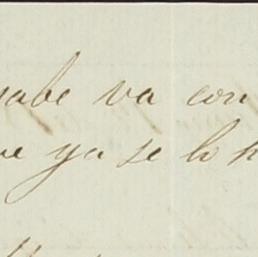 sabe va con
ue ya se lo h